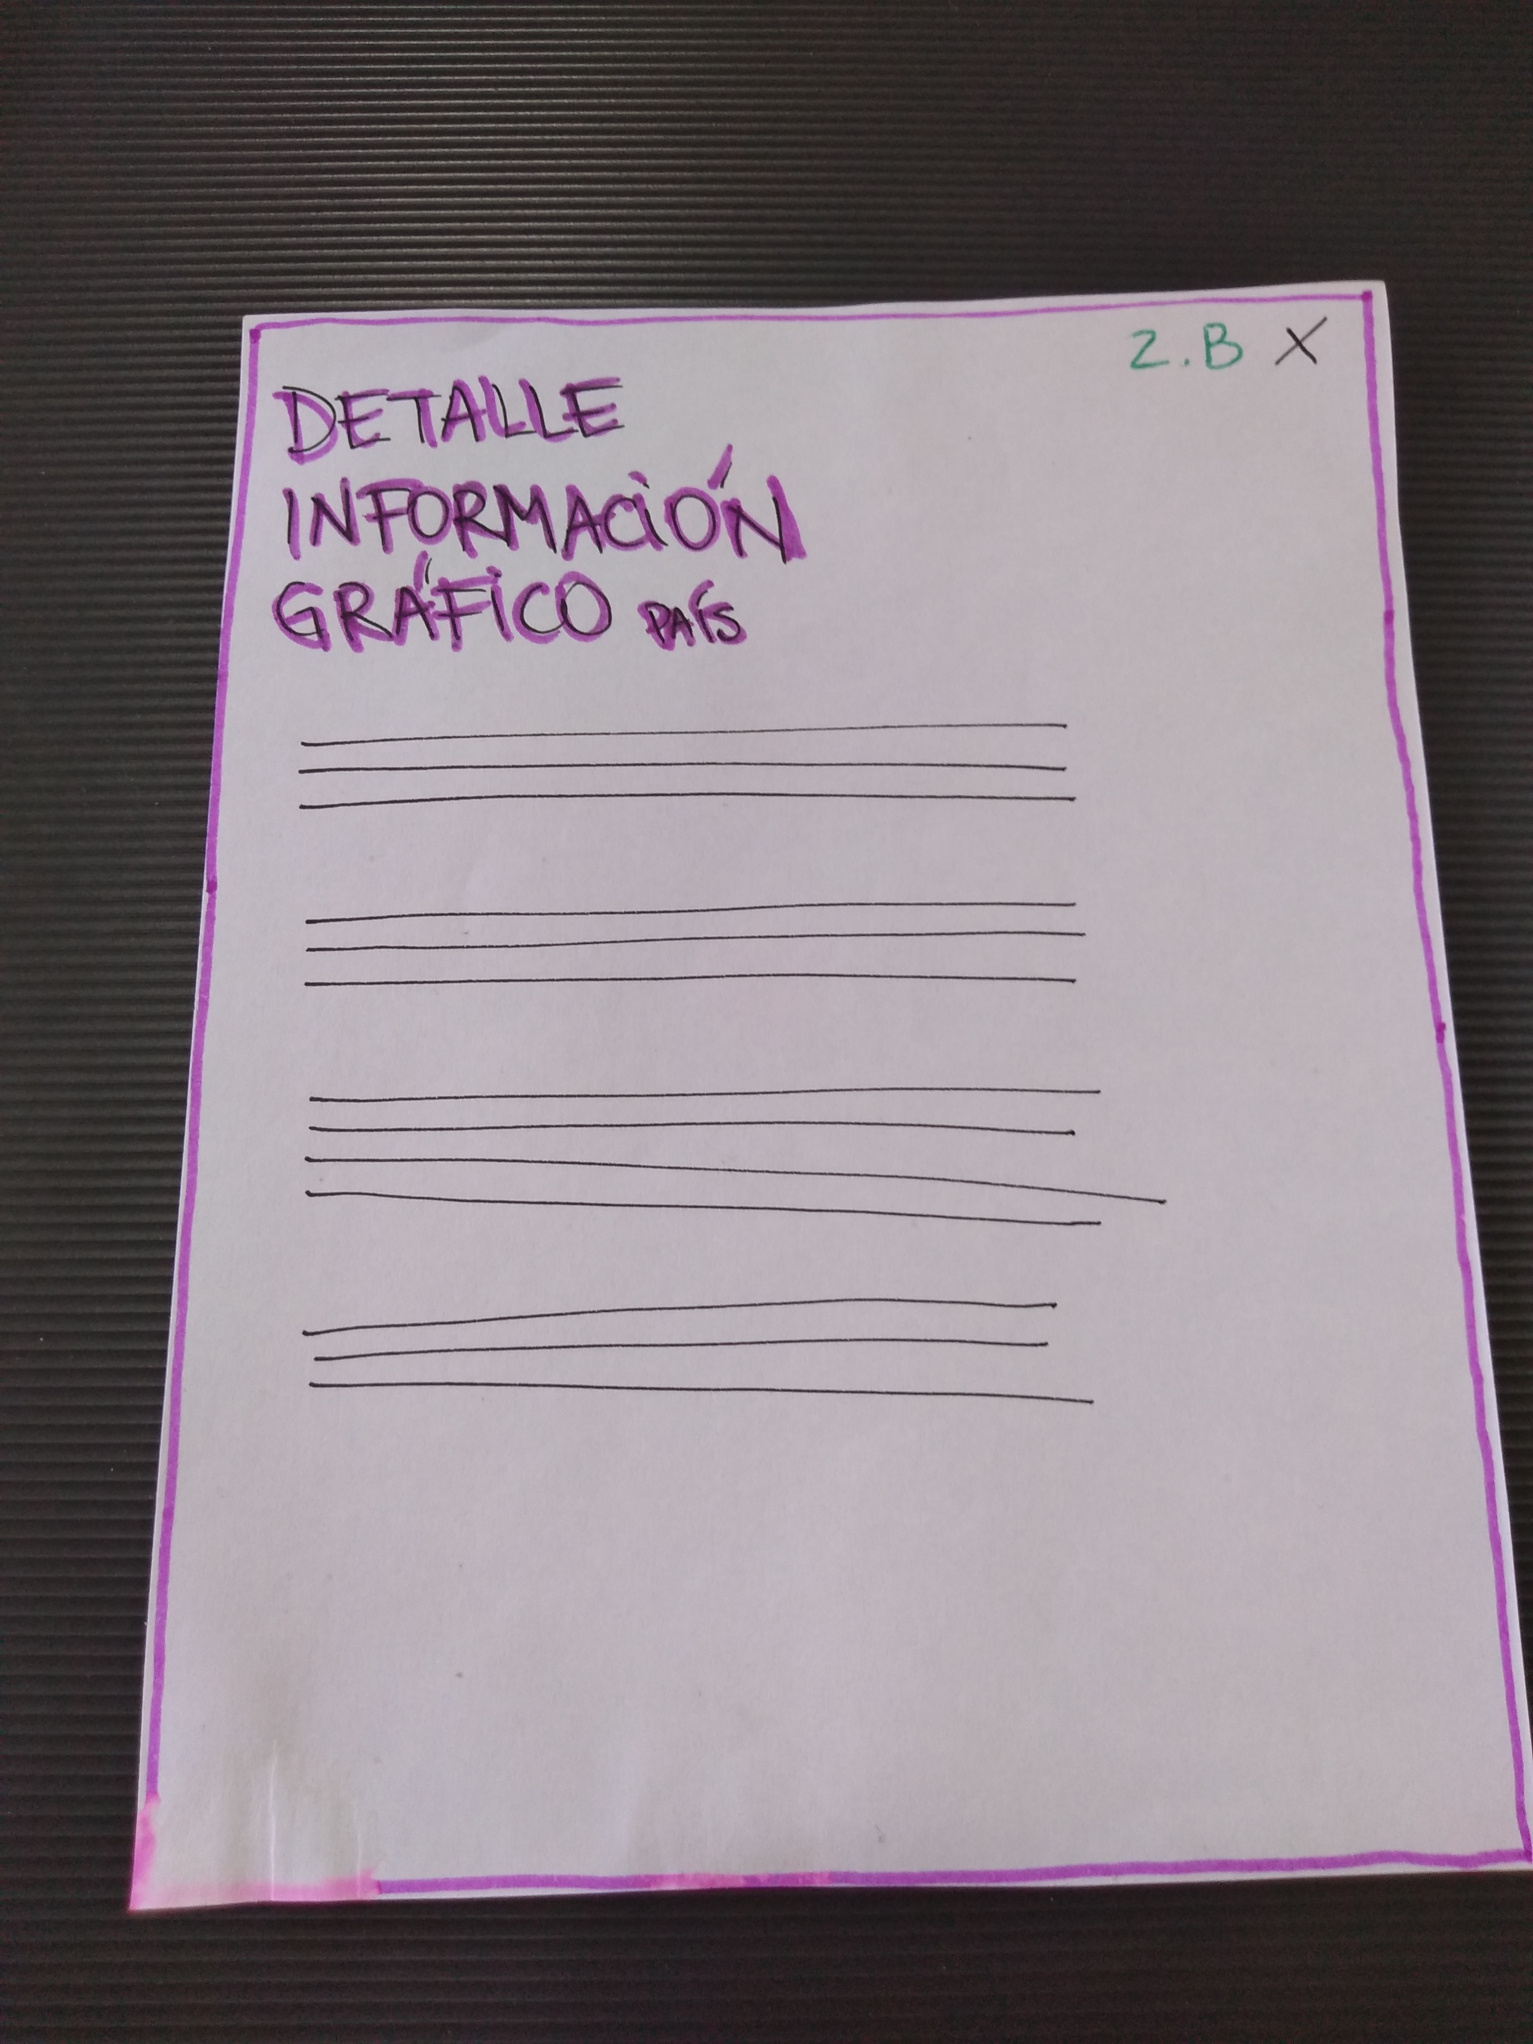 2.B X
DETALLE
INFORMACIÓN
GRÁFICO PAÍS